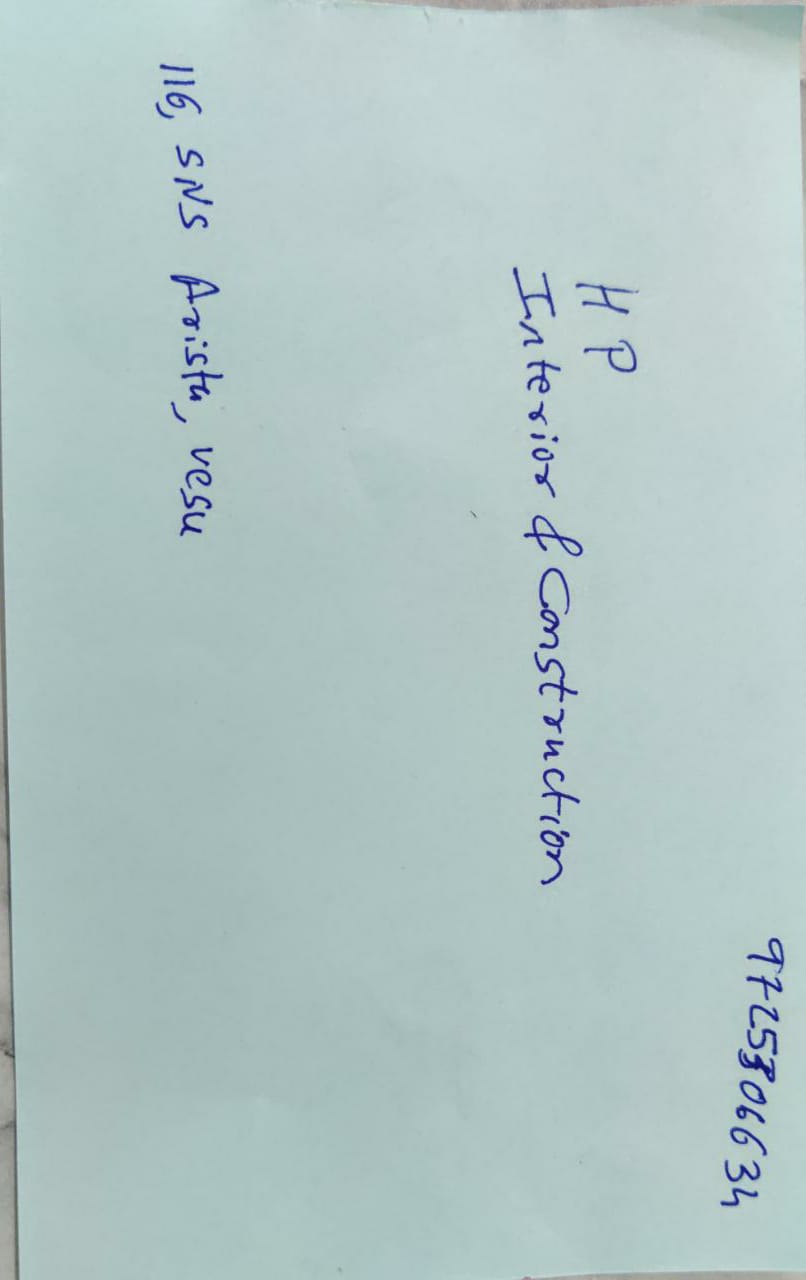 9725806634
H P
Interior & Construction
116, SNS Arista, vesu